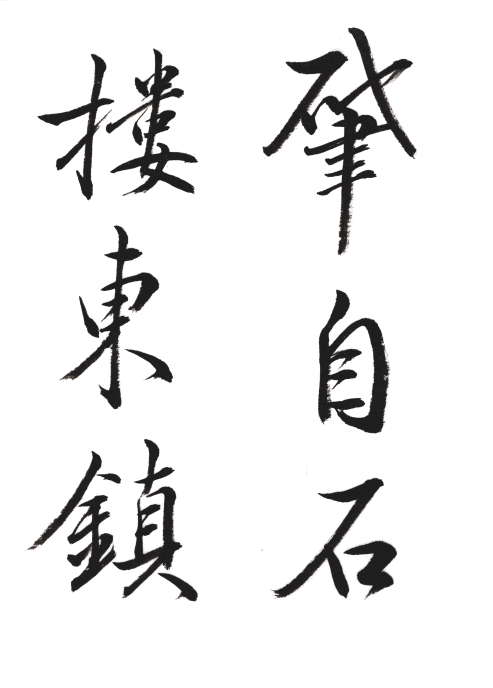 肇自石
摟東鎮